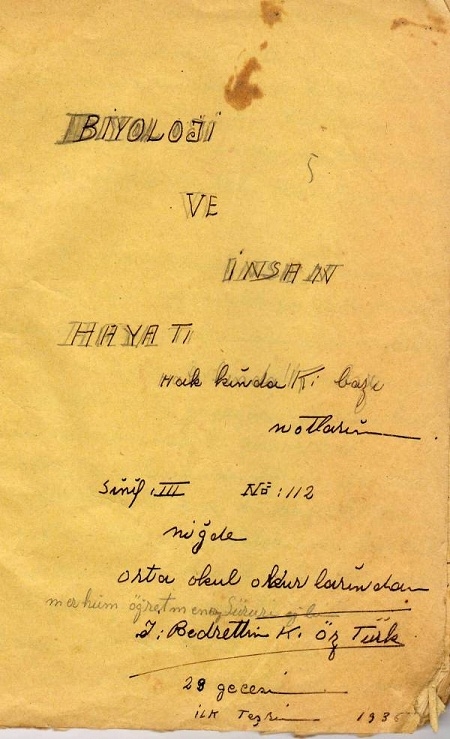 BİYOLOJİ
VE
İNSAN
HAYATI
Hakkında Ki bazı
notlarım
Sınıf: III No: 112
niğde
orta okul okurlarından
merhum öğretmen
İ: Bedrettin K. Öz Türk
29 gecesi
İLK Teşrin 1935